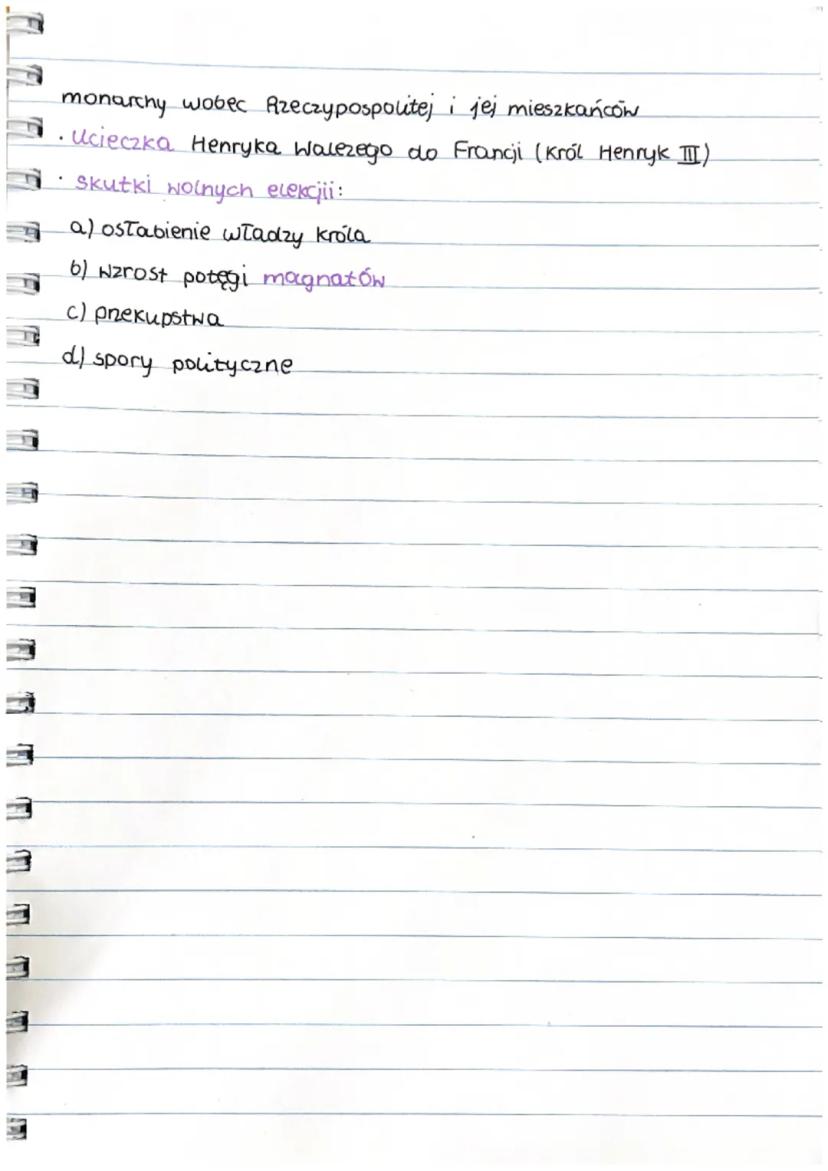 monarchy wobec Rzeczypospolitej i jej mieszkańców
· Ucieczka Henryka Walezego do Francji (Król Henryk III)
· skutki wolnych elekcjii:
a) osłabienie władzy króla
b) wzrost potęgi magnatów
c) przekupstwa
d) spory polityczne